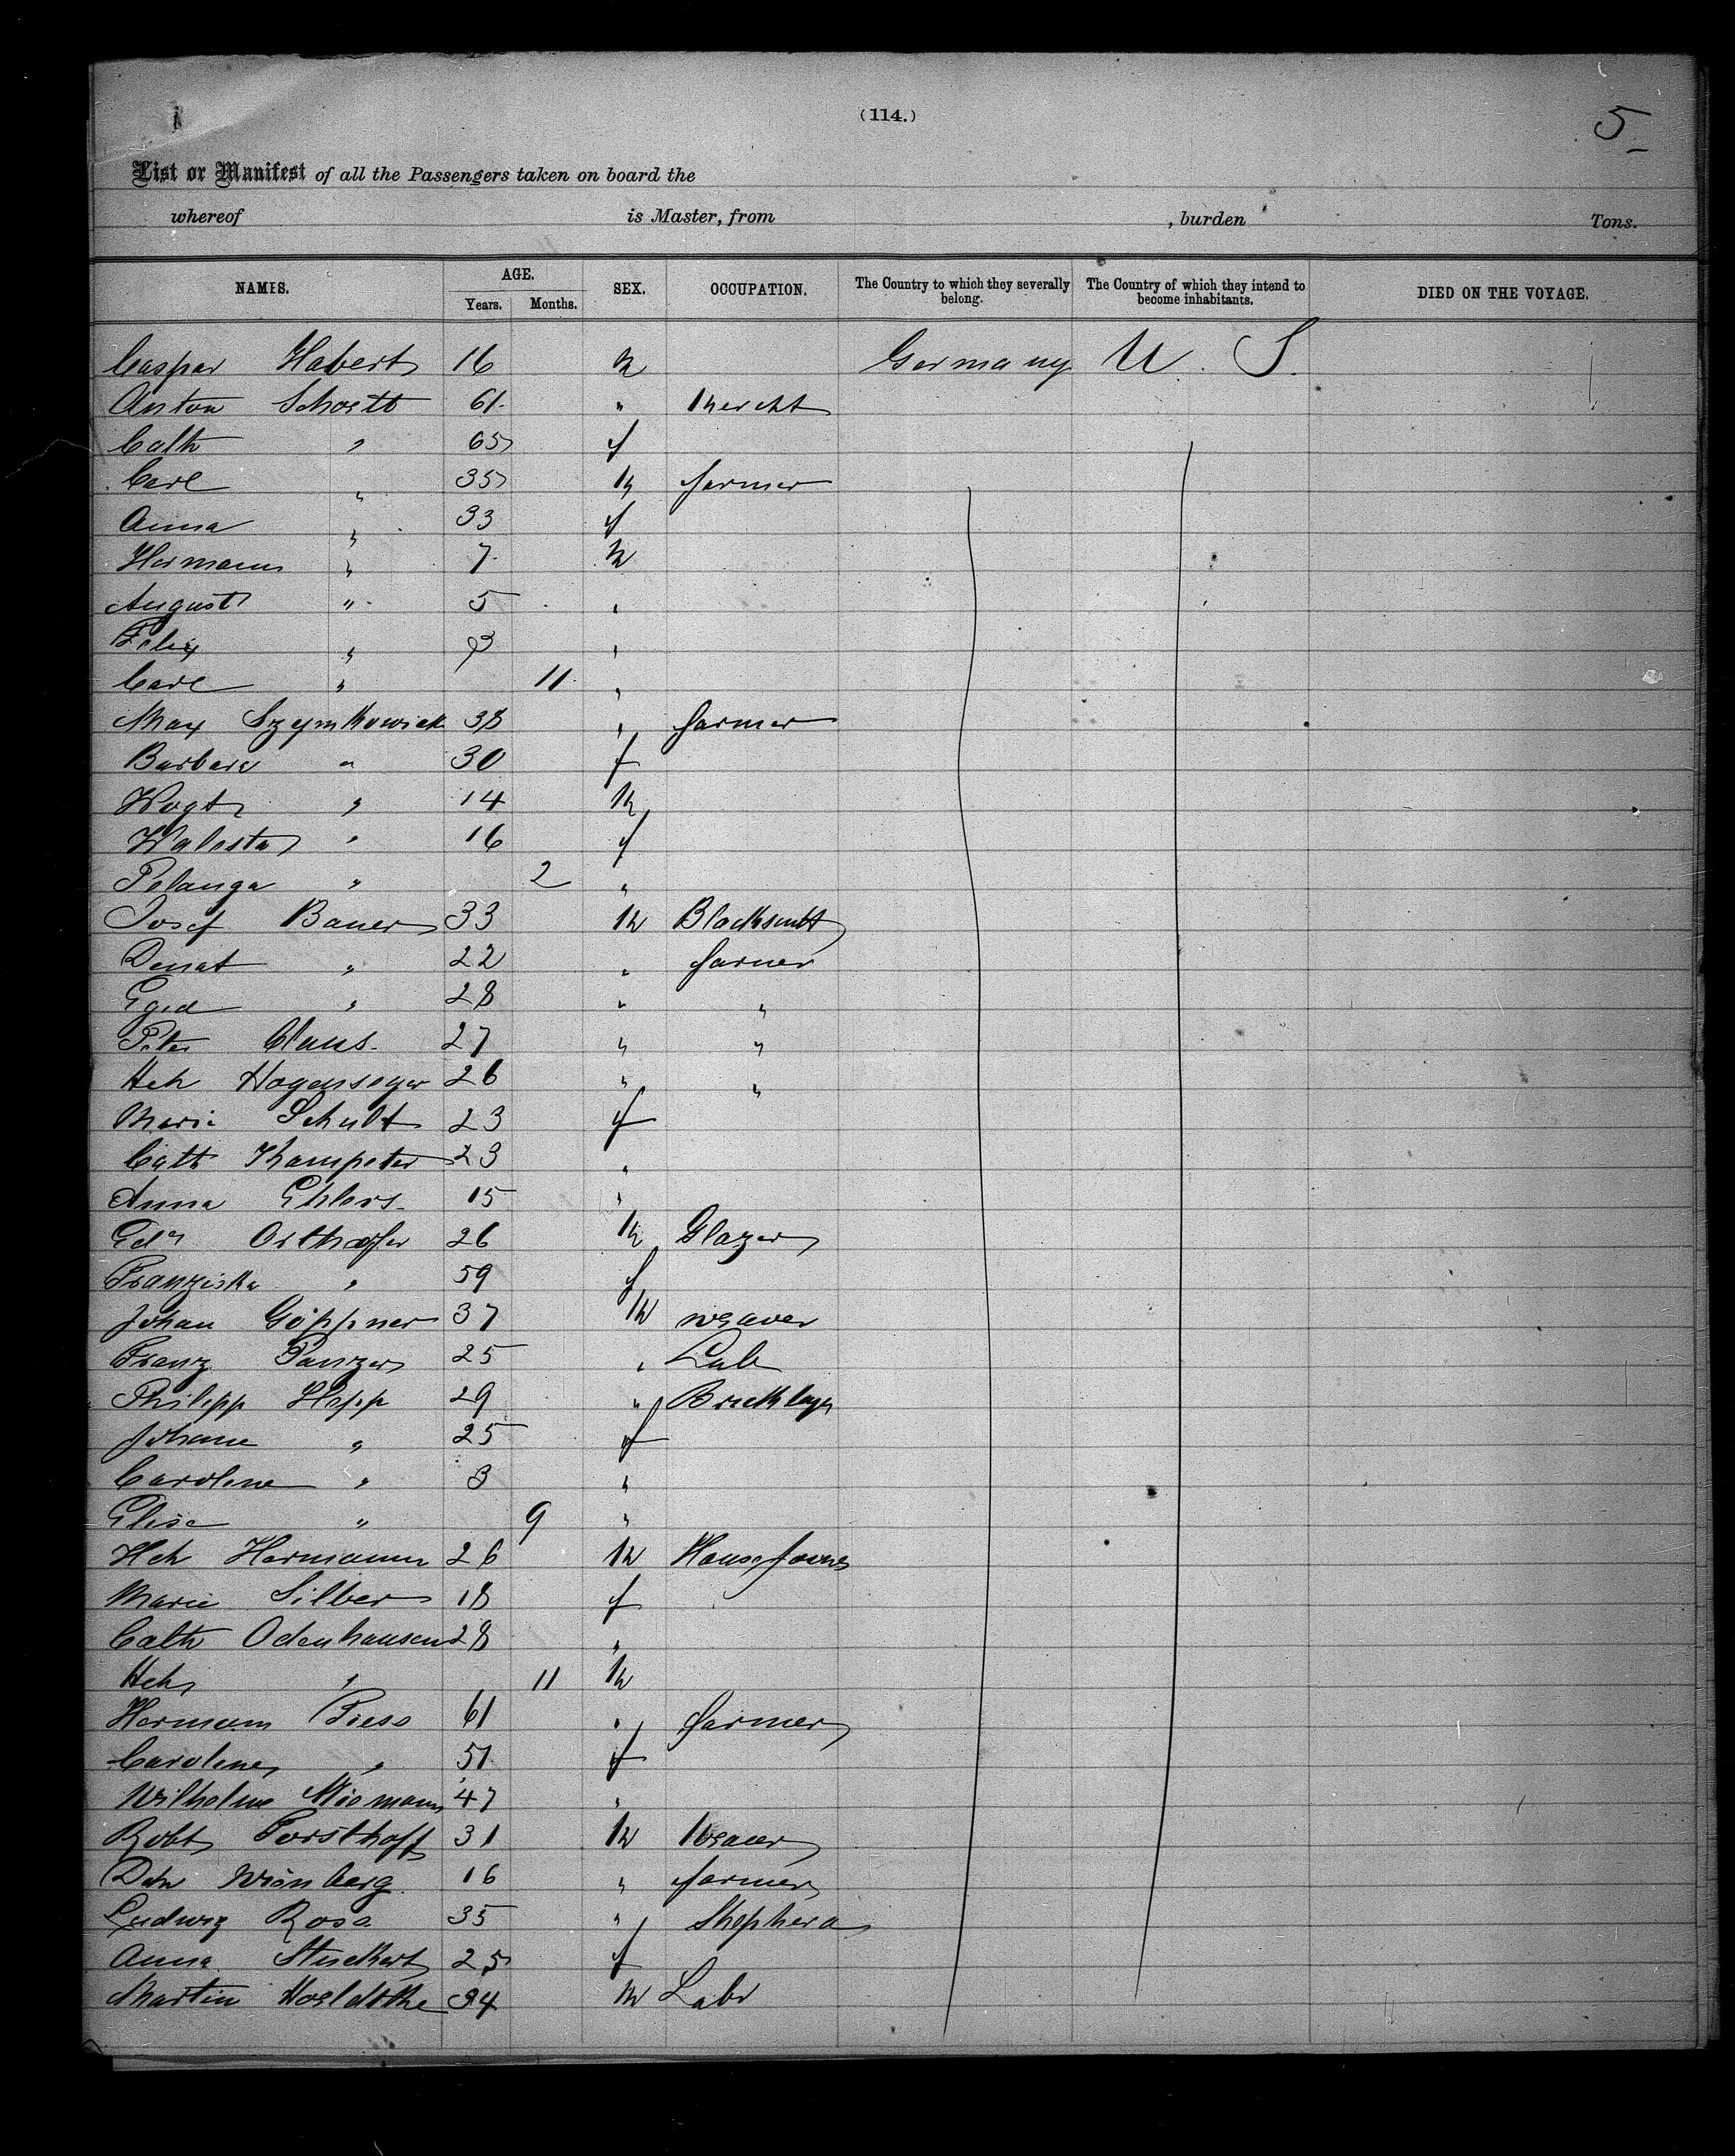 (114.)
5
List or Manifest of all the Passengers taken on board the
whereof is Master, from , burden Tons.
NAMES. AGE. Years. Months. SEX. OCCUPATION. The Country to which they severally belong. The Country of which they intend to become inhabitants. DIED ON THE VOYAGE.
Caspar Habert 16 m Germany U. S.
Anton 61 "
Cath " 65 f
Carl " 35 m farmer
Anna " 33 f
Hermann " 7 m
August " 5 "
Felix " 3 "
Carl " 11 "
Max Szymkowiak 38 " farmer
Barbara " 30 f
Wogt " 14 m
" 16 f
Pelanga " 2 "
Josef Bauer 33 m Blacksmith
Donat " 22 " farmer
Egid " 28 " "
Peter Claus 27 " "
Hch 26 " "
Marie Schult 23 f
Cath Kampeter 23 "
Anna Ehlers 15 "
Edd Osthofer 26 m Glazer
Franziska " 59 f
Johan Göppner 37 m weaver
Franz Panzer 25 " Lab
Philipp Hepp 29 " Bricklayr
Johane " 25 f
Caroline " 3 "
Elise " 9 "
Hch Hermann 26 m
Marie Silber 18 f
Cath Odenhausen 28 "
Hch " 11 m
Hermann Piess 61 " farmer
Caroline " 51 f
Wilhelme 47 "
Robt Forsthoff 31 m Weaver
16 " farmer
Ludwig Rose 35 " Shepherd
Anna Stuckert 25 f
Martin 34 m Labr